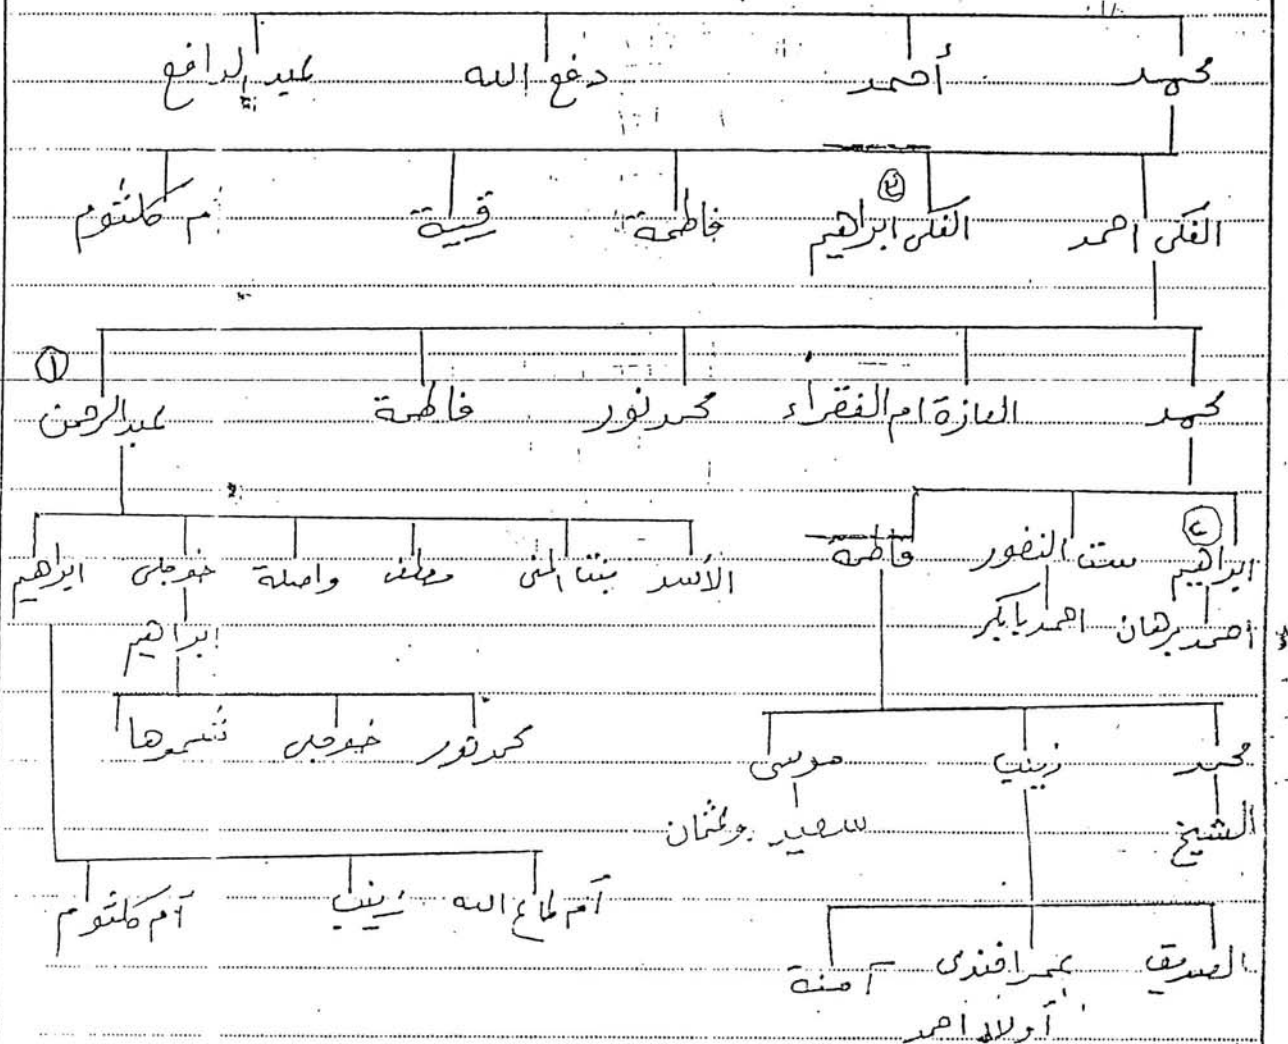 محمد أحمد دفع الله عبد الدافع
الفكى احمد الفكى ابراهيم فاطمة رقية أم كلثوم
محمد العازة ام الفقراء محمد نور فاطمة عبدالرحمن ①
ابراهيم ست النفور فاطمة الأسد بنت المنى واصلة خوجلى ابراهيم
احمد برهان احمد بابكر ابراهيم
محمد زينب موسى محمد نور خوجلى
الشيخ سعيد وعثمان
أم طاع الله زينب أم كلثوم
الصديق عمر افندى آمنة
أولاد احمد